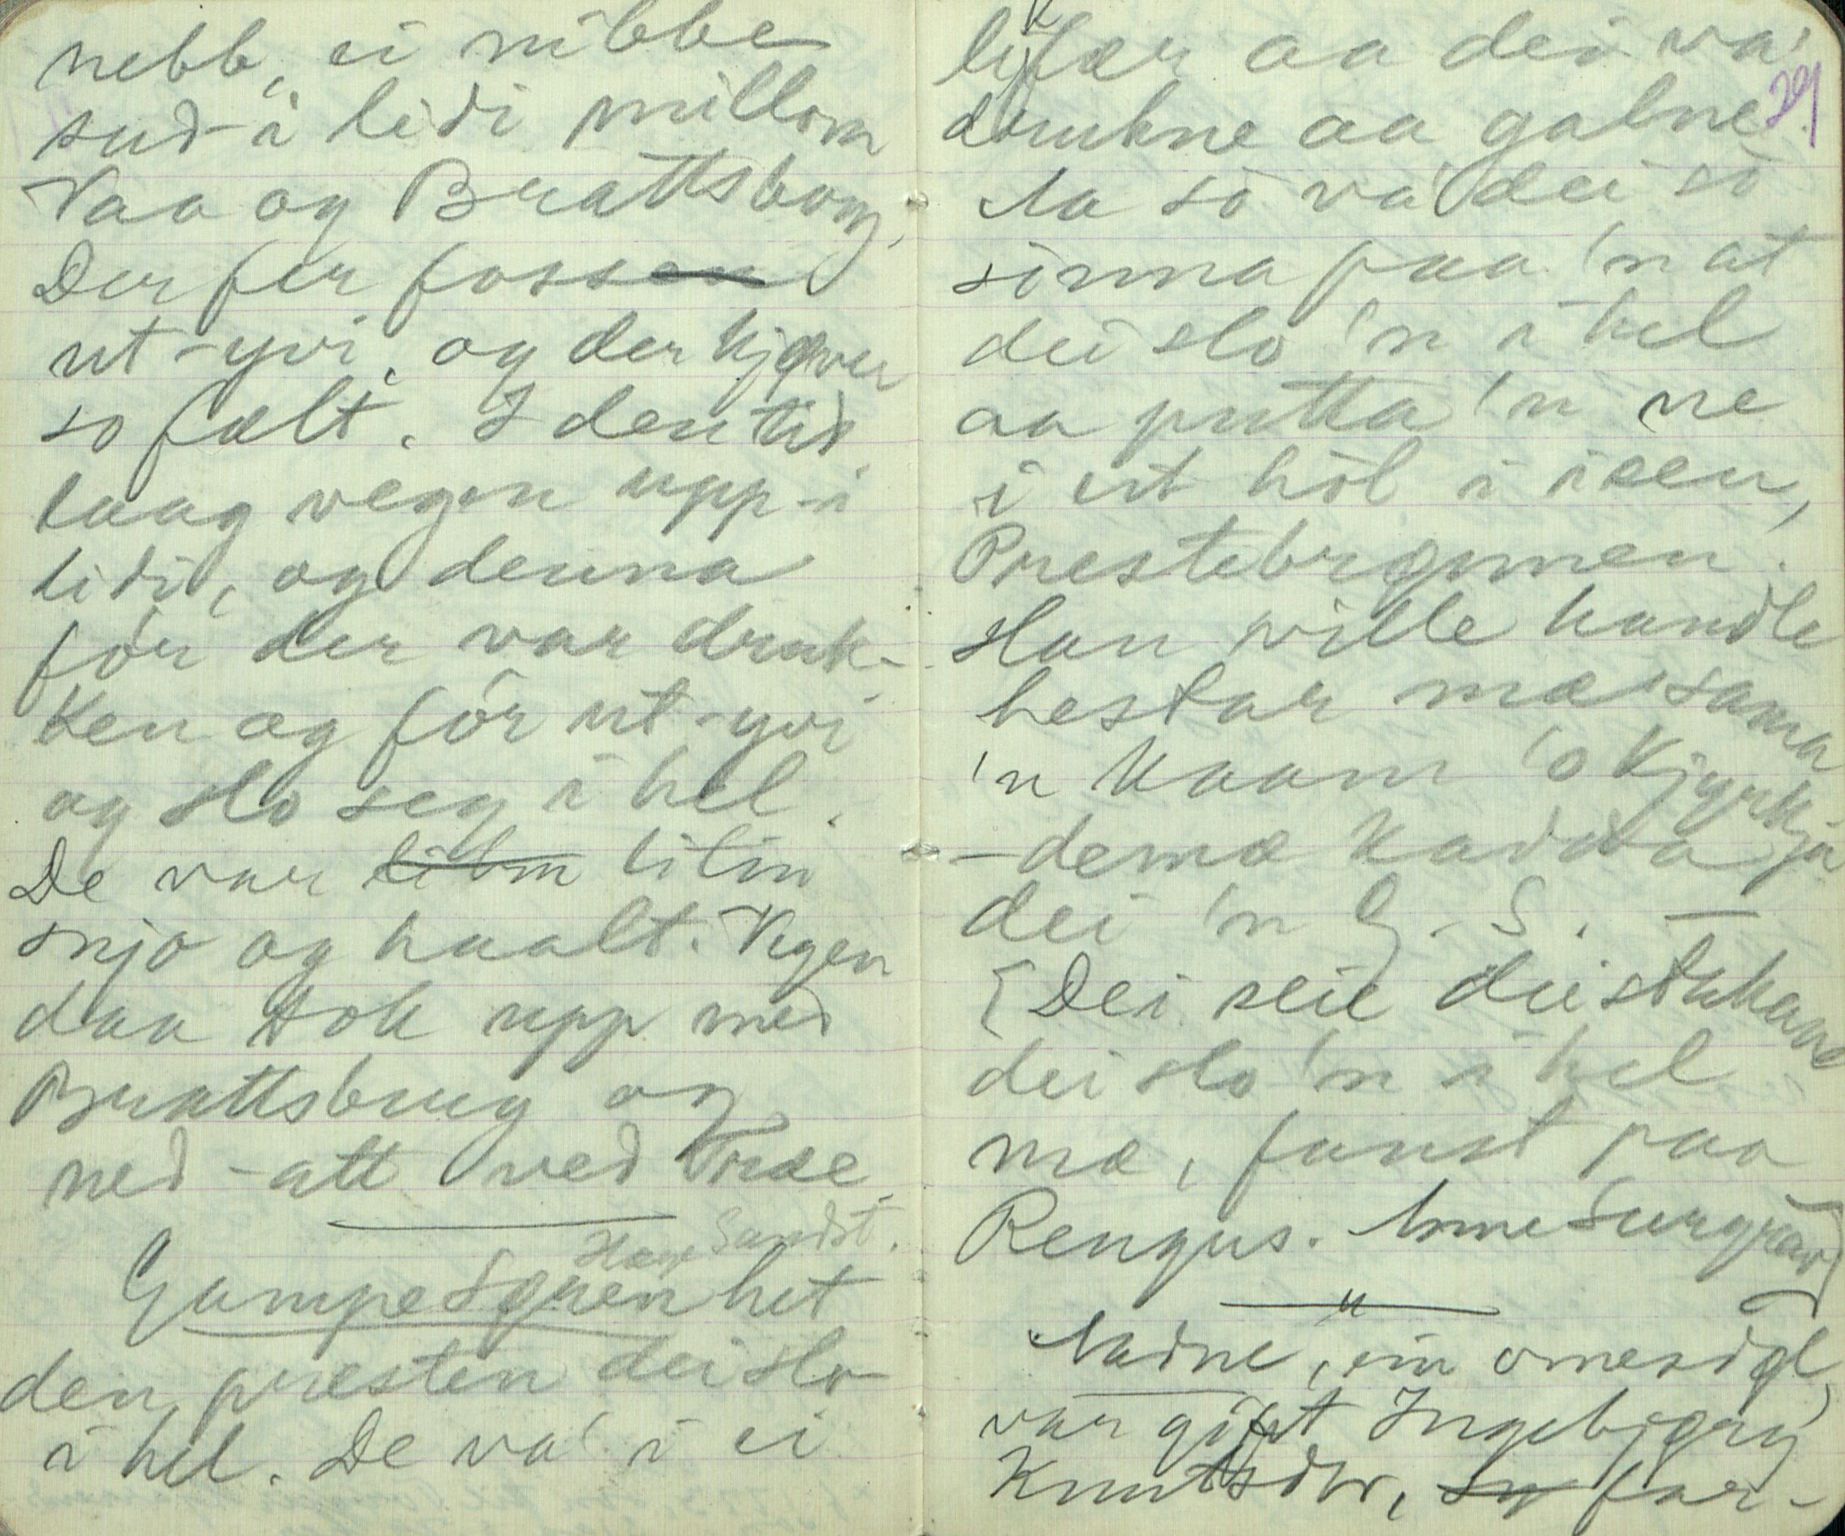 nebb, ei nibbe
sud-i lidi millom
Vaa og Brattsborg.
Der fer fossen
ut-yvi, og der kjøver
so fælt. I den tid
laag vegen upp-i
lidi, og denna
fór der var druk-
ken og fór ut-yvi
og slo seg i hel.
De var litin
snjo og haalt. Vegen
daa tok upp med
Brattsberg og
ned-att ved Træe.
Hans Sandst.
Gampe Søren het
den presten dei slo
i hel. De va' i ei
likfær aa dei va'
29
drukne aa galne.
Aa so va' dei so
sinna paa 'n at
dei slo 'n i hel
aa putta 'n ne
i eit hòl i isen,
Prestebrunnen.
Han ville handle
hestar mæ sama
'n kaam 'o kjyrkja
– demæ kadda
dei 'n G. S. –
[Dei seie dei stakane
dei slo 'n i hel
mæ, fanst paa
Rengus. Anne Surgrav]
"
Aadne, ein
var gift Ingebjørg
Knutsdtr, sy far-